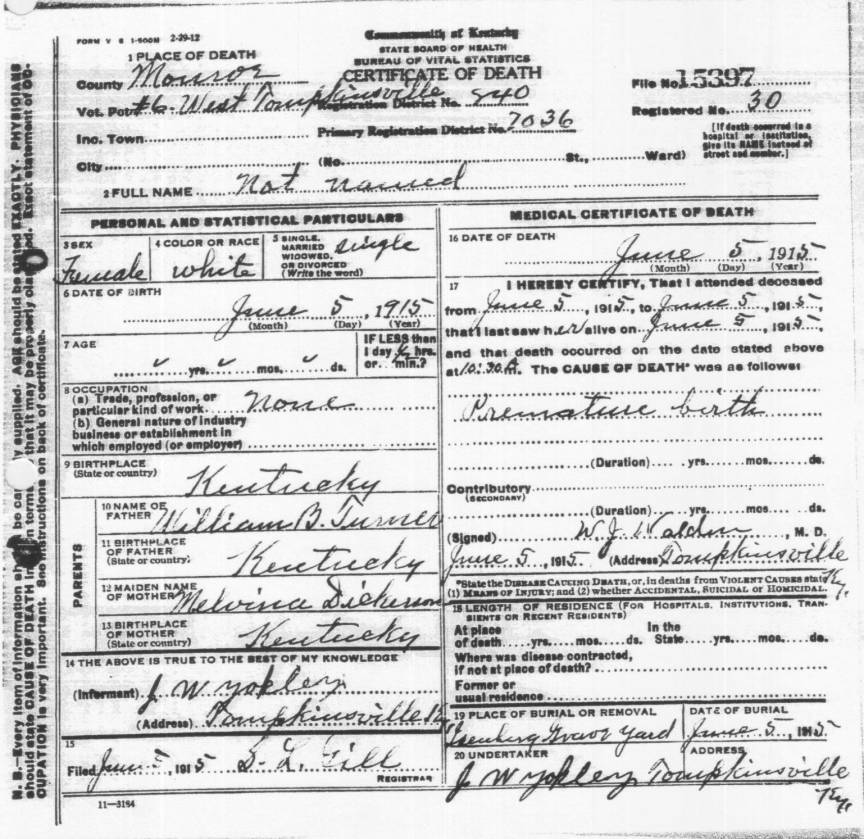 FORM V S 1-500M 2-29-12
Commonwealth of Kentucky
STATE BOARD OF HEALTH
BUREAU OF VITAL STATISTICS
CERTIFICATE OF DEATH
1 PLACE OF DEATH
County Monroe
Vot. Pct. #6. West Tompkinsville
Registration District No. 840
Inc. Town
Primary Registration District No. 7036
City (No. St., Ward)
File No. 15397
Registered No. 30
[If death occurred in a
hospital or institution,
give its NAME instead of
street and number.]
2 FULL NAME Not named
PERSONAL AND STATISTICAL PARTICULARS
3 SEX Female
4 COLOR OR RACE white
5 SINGLE, MARRIED WIDOWED, OR DIVORCED (Write the word) single
6 DATE OF BIRTH
June 5, 1915
(Month) (Day) (Year)
7 AGE
yrs. mos. ds.
IF LESS than
1 day ½ hrs.
or min.?
8 OCCUPATION
(a) Trade, profession, or
particular kind of work none
(b) General nature of industry
business or establishment in
which employed (or employer)
9 BIRTHPLACE
(State or country) Kentucky
PARENTS
10 NAME OF
FATHER William B. Turner
11 BIRTHPLACE
OF FATHER
(State or country) Kentucky
12 MAIDEN NAME
OF MOTHER Melvina Dickerson
13 BIRTHPLACE
OF MOTHER
(State or country) Kentucky
14 THE ABOVE IS TRUE TO THE BEST OF MY KNOWLEDGE
(Informant) J W Yokley
(Address) Tompkinsville Ky
15
Filed June 5, 1915 S. L. Gill
REGISTRAR
11—3184
MEDICAL CERTIFICATE OF DEATH
16 DATE OF DEATH
June 5, 1915
(Month) (Day) (Year)
17 I HEREBY CERTIFY, That I attended deceased
from June 5, 1915, to June 5, 1915,
that I last saw her alive on June 5, 1915,
and that death occurred on the date stated above
at 10:30 A. The CAUSE OF DEATH* was as follows:
Premature birth
(Duration) yrs. mos. ds.
Contributory
(SECONDARY)
(Duration) yrs. mos. ds.
(Signed) W. J. Walden, M. D.
June 5, 1915 (Address) Tompkinsville
Ky.
*State the DISEASE CAUSING DEATH, or, in deaths from VIOLENT CAUSES state
(1) MEANS OF INJURY; and (2) whether ACCIDENTAL, SUICIDAL OR HOMICIDAL.
18 LENGTH OF RESIDENCE (FOR HOSPITALS, INSTITUTIONS, TRANSIENTS
OR RECENT RESIDENTS)
At place In the
of death yrs. mos. ds. State yrs. mos. ds.
Where was disease contracted,
if not at place of death?
Former or
usual residence
19 PLACE OF BURIAL OR REMOVAL
Grave Yard
DATE OF BURIAL
June 5, 1915
20 UNDERTAKER
J W Yokley
ADDRESS
Tompkinsville
Ky.
N. B.—Every item of information should be carefully supplied. AGE should be stated EXACTLY. PHYSICIANS
should state CAUSE OF DEATH in terms that it may be properly classified. Exact statement of OC-
CUPATION is very important. See instructions on back of certificate.